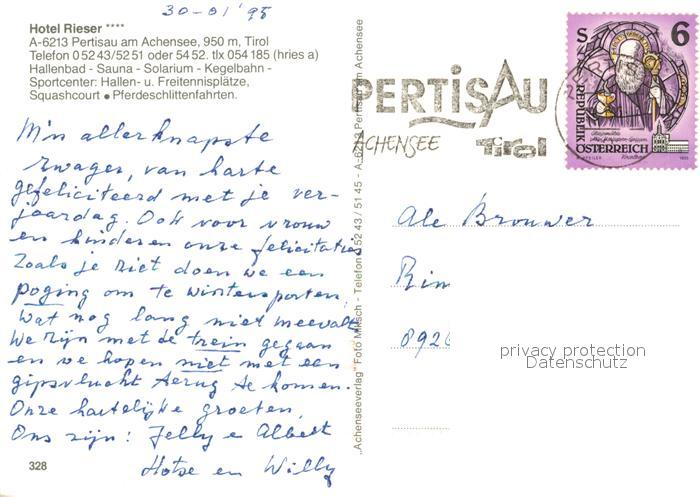 30-01 '95
Hotel Rieser ****
A-6213 Pertisau am Achensee, 950 m, Tirol
Telefon 0 52 43/52 51 oder 54 52. tlx 054 185 (hries a)
Hallenbad - Sauna - Solarium - Kegelbahn -
Sportcenter: Hallen- u. Freitennisplätze,
Squashcourt • Pferdeschlittenfahrten.
M'n allerknapste
zwager, van harte
gefeliciteerd met je ver-
jaardag. Ook voor vrouw
en kinderen onze felicitaties
Zoals je ziet doen we een
poging om te wintersporten,
wat nog lang niet meevalt
We zijn met de trein gegaan
en we hopen niet met een
gipsvlucht terug te komen.
Onze hartelijke groeten,
Ons zijn: Jelly e Albert
Hotse en Willy
328
„Achenseeverlag" Foto Miksch - Telefon 0 52 43 / 51 45 - A-6213 Pertisau am Achensee
PERTISAU
ACHENSEE Tirol
S 6
REPUBLIK
ÖSTERREICH
1993
Ale Brouwer
Rin
8926
privacy protection
Datenschutz